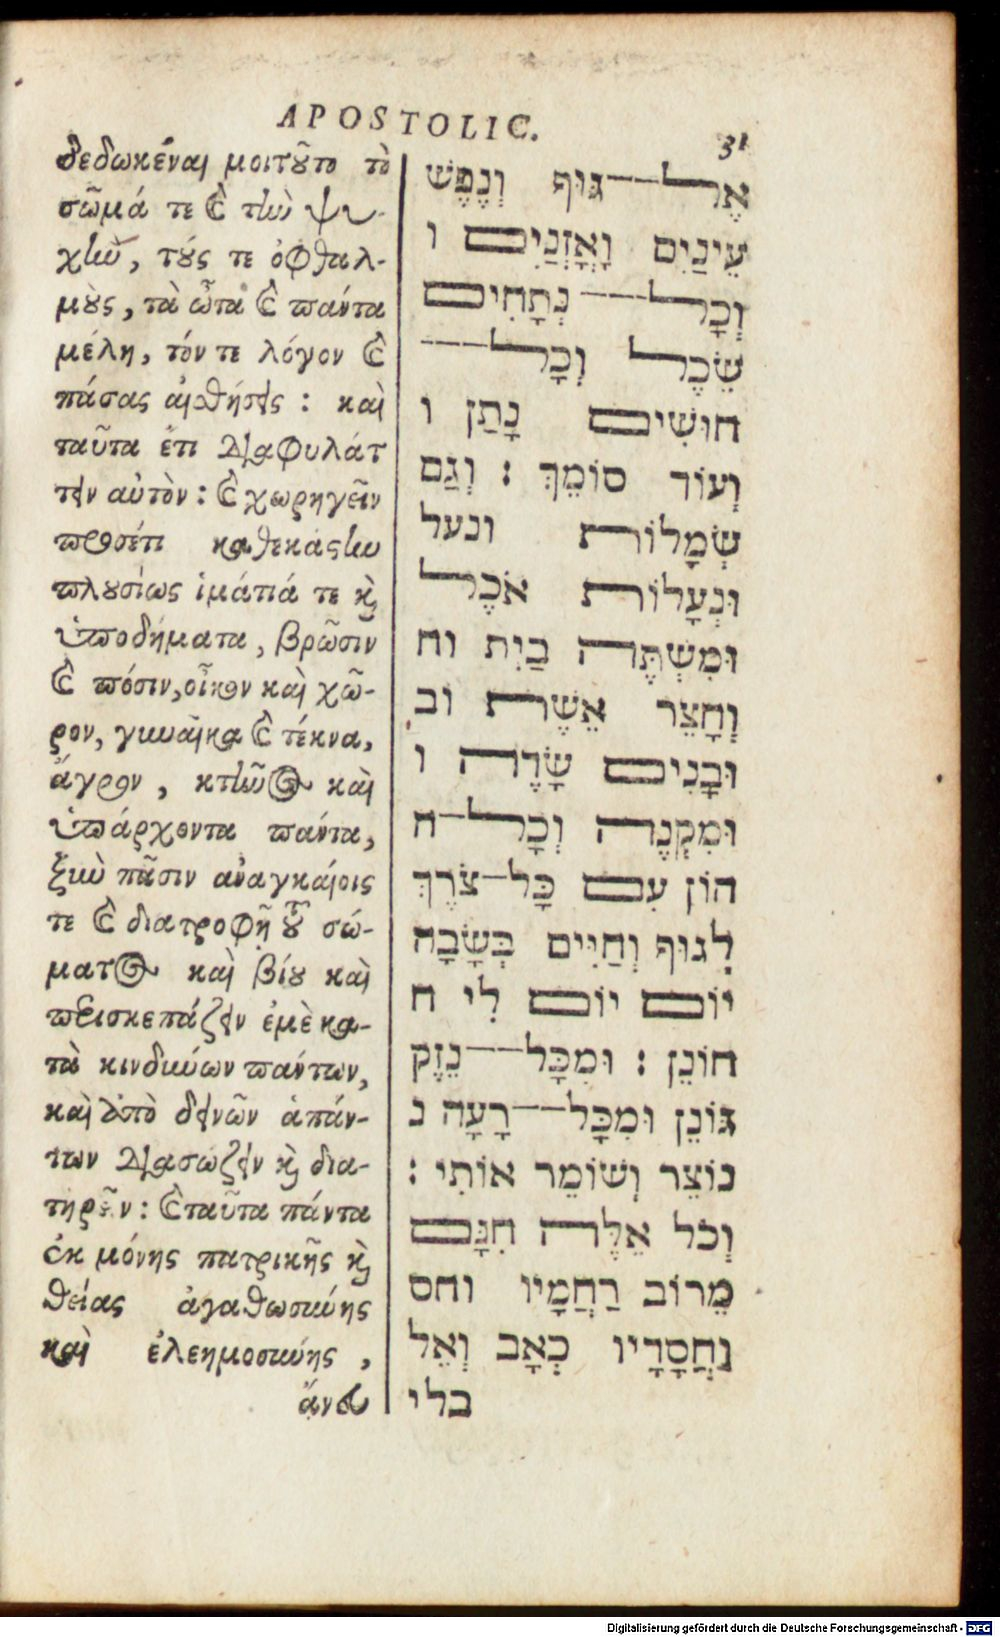 APOSTOLIC.
31
δεδωκέναι μοι τοῦτο τὸ
σῶμά τε καὶ τὴν ψυ-
χὴν, τούς τε ὀφθαλ-
μοὺς, τὰ ὦτα καὶ πάντα
μέλη, τόν τε λόγον καὶ
πάσας αἰσθήσεις : καὶ
ταῦτα ἔτι διαφυλάτ
τειν αὐτὸν : καὶ χωρηγεῖν
προσέτι καθεκάστην
πλουσίως ἱμάτιά τε καὶ
ὑποδήματα, βρῶσιν
καὶ πόσιν, οἶκον καὶ χῶ-
ρον, γυναῖκα καὶ τέκνα,
ἄγρον, κτῆνος καὶ
ὑπάρχοντα πάντα,
ξὺν πᾶσιν ἀναγκαίοις
τε καὶ διατροφῇ τοῦ σώ-
ματος καὶ βίου καὶ
περισκεπάζειν ἐμὲ κα-
τὰ κινδύνων πάντων,
καὶ ἀπὸ δεινῶν ἁπάν-
των διασώζειν καὶ δια-
τηρεῖν : καὶ ταῦτα πάντα
ἐκ μόνης πατρικῆς καὶ
θείας ἀγαθωσύνης
καὶ ἐλεημοσύνης,
ἄνευ
אֶל גּוּף וְנֶפֶשׁ
עֵינַיִם וְאָזְנַיִם ו
וְכָל נְתָחִים
שֵׂכֶל וְכָל
חוּשִׁים נָתַן ו
וְעוֹד סוֹמֵךְ : וְגַם
שְׂמָלוֹת ונעל
וּנְעָלוֹת אֹכֶל
וּמִשְׁתֶּה בַּיִת וח
וְחָצֵר אֵשֶׁת וב
וּבָנִים שָׂדֶה ו
וּמִקְנֶה וְכָל ח
הוֹן עִם כָּל צֹרֶךְ
לְגוּף וְחַיִּים בְּשָׂבָה
יוֹם יוֹם לִי ח
חוֹנֵן : וּמִכָּל נֵזֶק
גּוֹנֵן וּמִכָּל רָעָה נ
נוֹצֵר וְשׁוֹמֵר אוֹתִי :
וְכֹל אֵלֶּה חִנָּם
מֵרוֹב רַחֲמָיו וחס
וַחֲסָדָיו כְּאָב וְאֵל
בלי
Digitalisierung gefördert durch die Deutsche Forschungsgemeinschaft - DFG